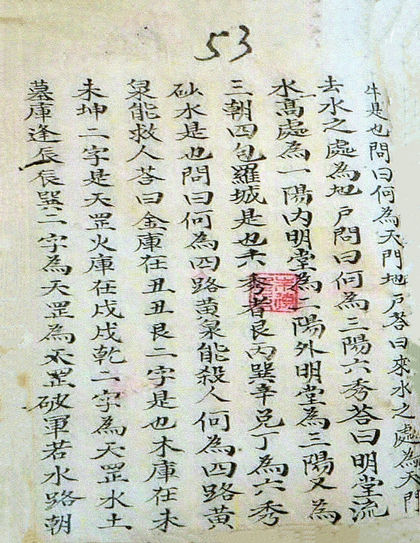 53
牛是也問曰何為天門地戶荅曰來水之處為天門
去水之處為地戶問曰何為三陽六秀荅曰明堂流
水髙處為一陽內明堂為二陽外明堂為三陽又為
三朝四包羅城是也六秀者艮丙巽辛兌丁為六秀
砂水是也問曰何為四路黃泉能殺人何為四路黃
泉能救人荅曰金庫在丑丑艮二字是也木庫在未
未坤二字是天罡火庫在戌戌乾二字為天罡水土
墓庫逢辰辰巽二字為天罡為天罡破軍若水路朝